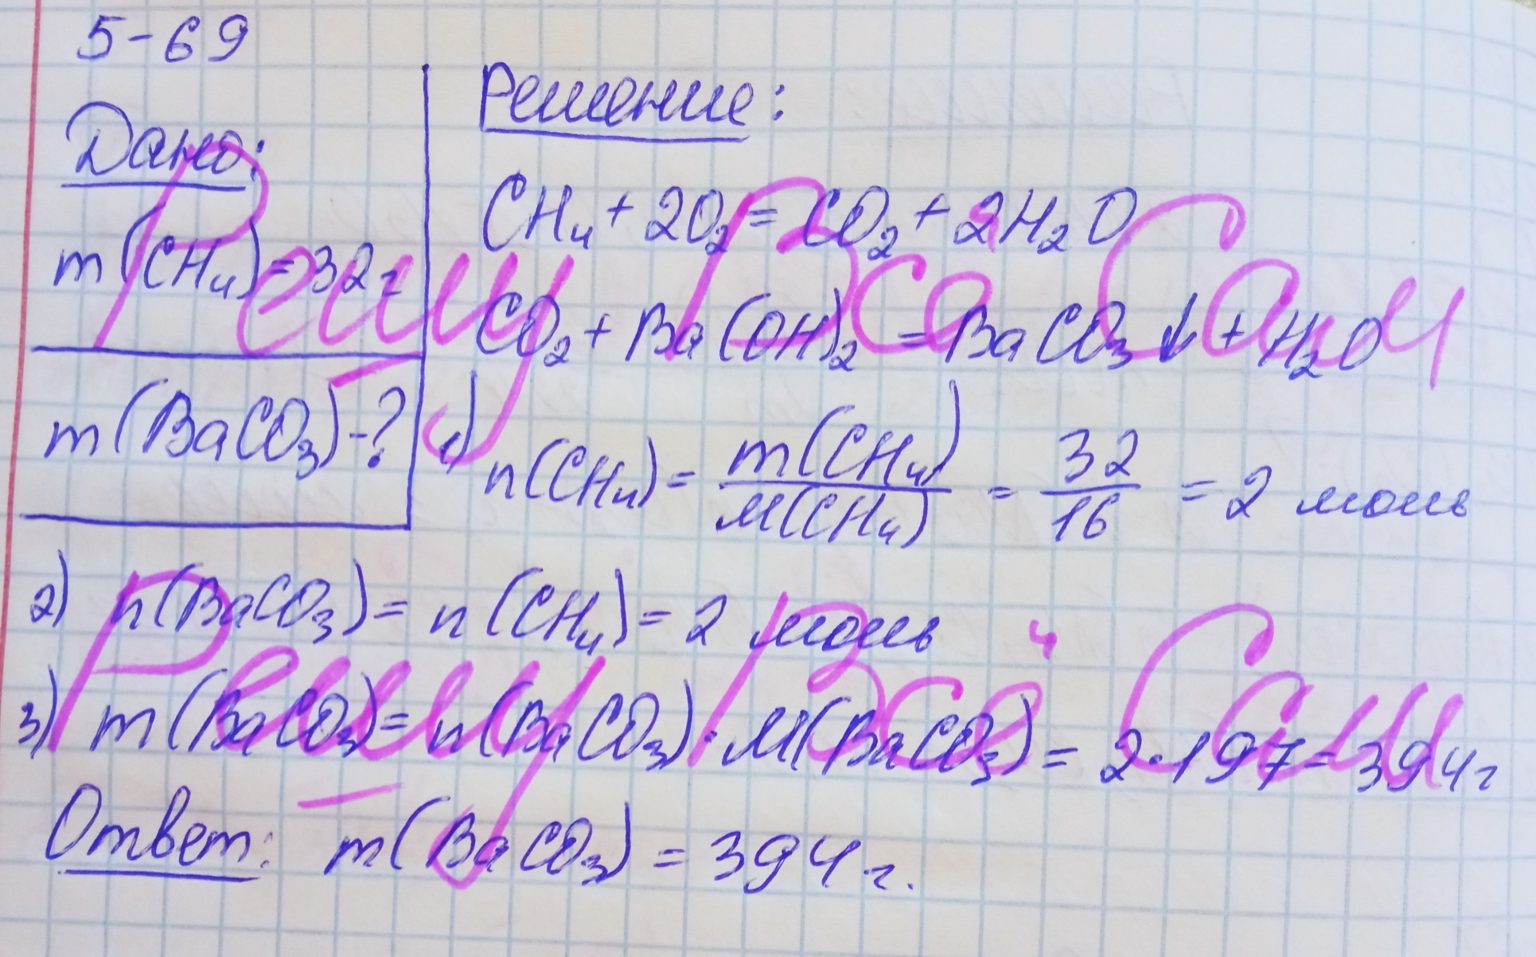 5-69
Дано:
m(CH₄)=32г
m(BaCO₃)-?
Решение:
CH₄ + 2O₂ = CO₂ + 2H₂O
CO₂ + Ba(OH)₂ = BaCO₃↓ + H₂O
1) n(CH₄) = m(CH₄)/M(CH₄) = 32/16 = 2 моль
2) n(BaCO₃) = n(CH₄) = 2 моль
3) m(BaCO₃) = n(BaCO₃)·M(BaCO₃) = 2·197 = 394г
Ответ: m(BaCO₃) = 394г.